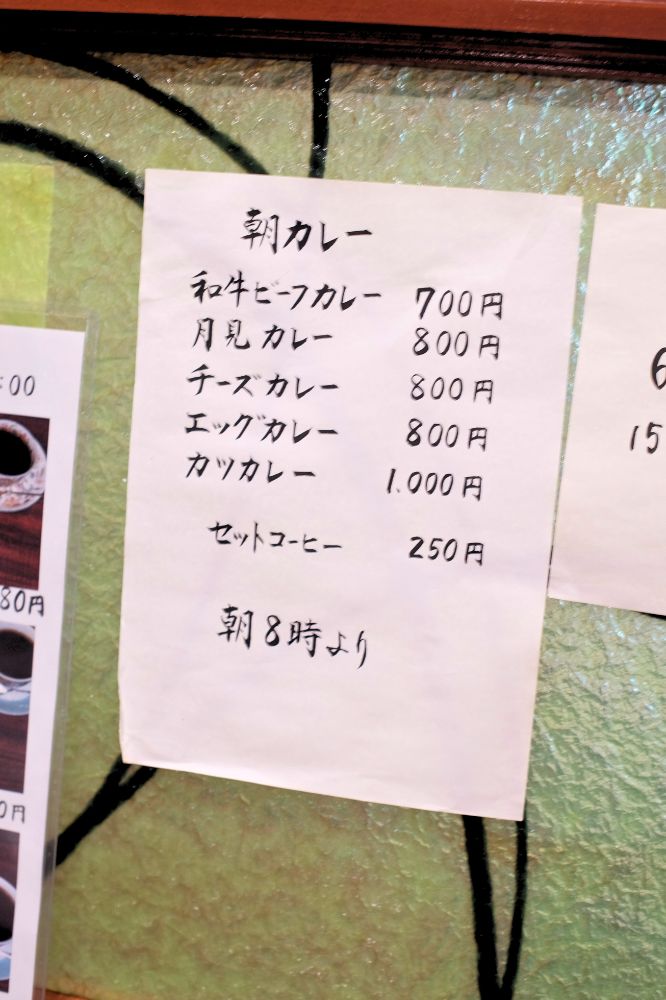 朝カレー
和牛ビーフカレー 700円
月見カレー 800円
チーズカレー 800円
エッグカレー 800円
カツカレー 1.000円
セットコーヒー 250円
朝8時より
:00
80円
0円
6
15